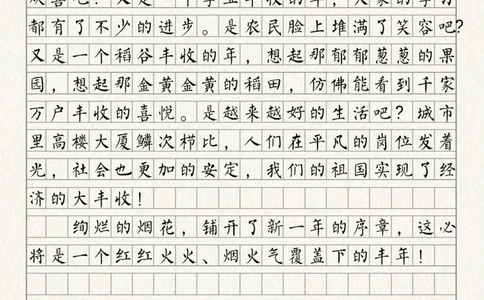 都有了不少的进步。是农民脸上堆满了笑容吧?
又是一个稻谷丰收的年,想起那郁郁葱葱的果
园,想起那金黄金黄的稻田,仿佛能看到千家
万户丰收的喜悦。是越来越好的生活吧?城市
里高楼大厦鳞次栉比,人们在平凡的岗位发着
光,社会也更加的安定,我们的祖国实现了经
济的大丰收!
绚烂的烟花,铺开了新一年的序章,这必
将是一个红红火火、烟火气覆盖下的丰年!